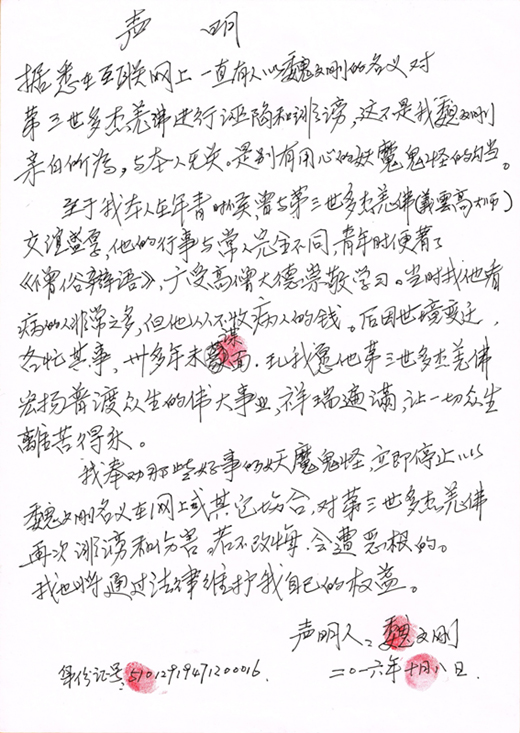 声 明
据悉在互联网上一直有人以魏文刚的名义对
第三世多杰羌佛进行诬陷和诽谤，这不是我魏文刚
亲自所为，与本人无关。是别有用心的妖魔鬼怪的勾当。
至于我本人在年青时候，曾与第三世多杰羌佛(義雲高大师)
交谊益厚，他的行事与常人完全不同，青年时便著了
《僧俗辩语》，广受高僧大德崇敬学习。当时找他看
病的人非常之多，但他从不收病人的钱。后因世境变迁，
各忙其事，卅多年未谋面。现我愿他第三世多杰羌佛
宏扬普渡众生的伟大事业，祥瑞遍满，让一切众生
離苦得乐。
我奉劝那些好事的妖魔鬼怪，立即停止以
魏文刚名义在网上或其它场合，对第三世多杰羌佛
再次诽谤和伤害。若不改悔，会遭恶报的。
我也将通过法律维护我自己的权益。
声明人：魏文刚
身份证号：51012919471200016. 二〇一六年十月八日.